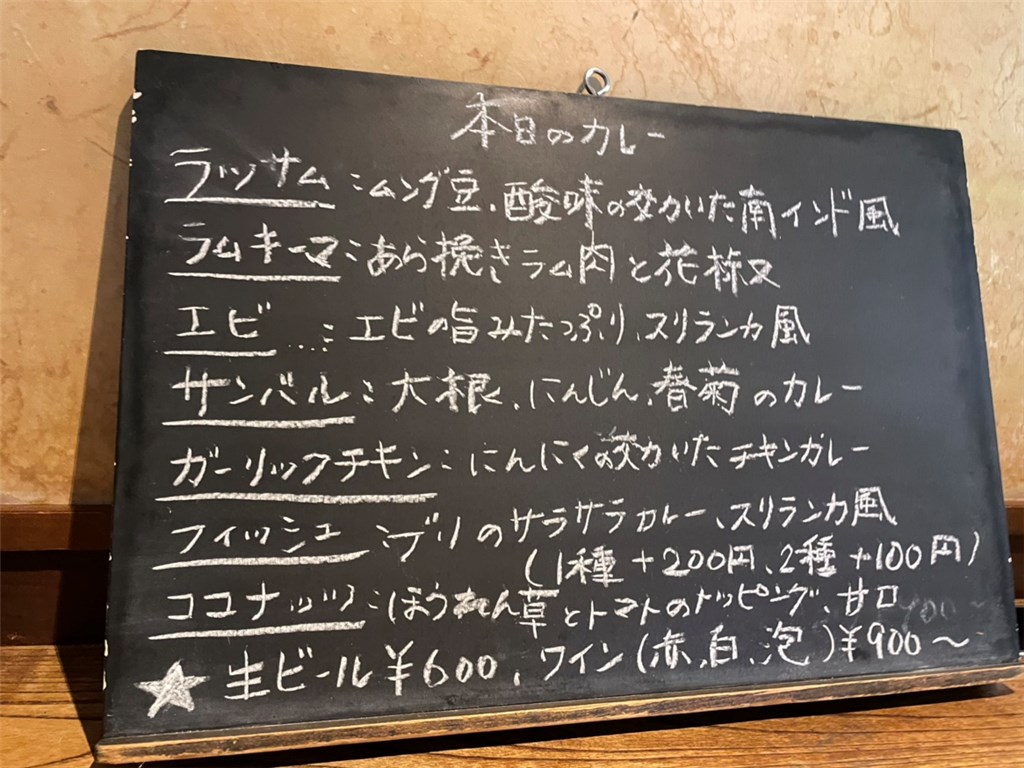 本日のカレー
ラッサム:ムング豆、酸味の効いた南インド風
ラムキーマ:あら挽きラム肉と花椒
エビ…:エビの旨みたっぷり、スリランカ風
サンバル:大根、にんじん、春菊のカレー
ガーリックチキン:にんにくの効いたチキンカレー
フィッシュ:ブリのサラサラカレー、スリランカ風
(1種+200円、2種+100円)
ココナッツ:ほうれん草とトマトのトッピング、甘口
★生ビール¥600、ワイン(赤、白、泡)¥900~